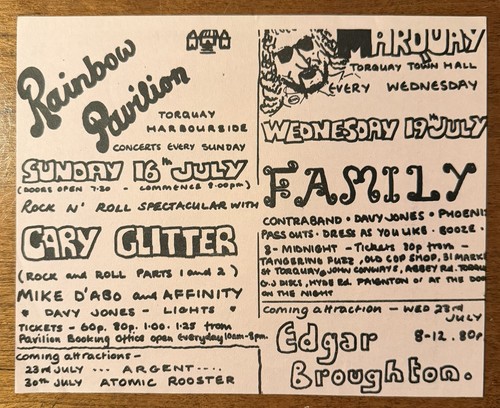 Rainbow
Pavilion
TORQUAY
HARBOURSIDE
CONCERTS EVERY SUNDAY
SUNDAY 16TH JULY
(DOORS OPEN 7.20 - COMMENCE 8.00pm)
ROCK N' ROLL SPECTACULAR WITH
GARY GLITTER
(ROCK AND ROLL PARTS 1 and 2)
MIKE D'ABO and AFFINITY
DAVY JONES - LIGHTS
TICKETS - 60p. 80p. 1.00. 1.25 from
Pavilion Booking Office open Everyday 10am-8pm.
coming attractions -
23rd JULY ... ARGENT....
30th JULY ATOMIC ROOSTER
MARQUAY
TORQUAY TOWN HALL
EVERY WEDNESDAY
WEDNESDAY 19TH JULY
FAMILY
CONTRABAND • DAVY JONES • PHOENIX
PASS OUTS • DRESS AS YOU LIKE • BOOZE •
8 - MIDNIGHT - Tickets 80p from -
TANGERINE FUZZ, OLD COP SHOP, 31 MARKET
ST TORQUAY, JOHN CONWAYS, ABBEY RD. TORQUAY
O.J DISCS, HYDE RD. PAIGNTON OR AT THE DOOR
ON THE NIGHT
coming attraction - WED 23rd
JULY
Edgar
8-12. 80p
Broughton.